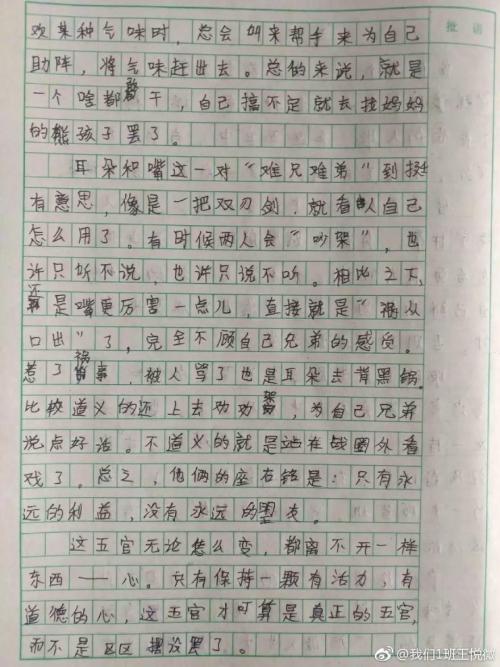 批语
欢某种气味时，总会叫来帮手来为自己
助阵，将气味赶出去。总的来说，就是
一个啥都敢干，自己搞不定就去找妈妈
的熊孩子罢了。
耳朵和嘴这一对“难兄难弟”到挺
有意思，像是一把双刃剑，就看人自己
怎么用了。有时候两人会“吵架”，也
许只听不说，也许只说不听。相比之下，
还是嘴更厉害一点儿，直接就是“祸从
口出”了，完全不顾自己兄弟的感受。
惹了祸事，被人骂了也是耳朵去背黑锅。
比较道义的还上去劝劝架，为自己兄弟
说点好话。不道义的就是站在战圈外看
戏了。总之，他俩的座右铭是：只有永
远的利益，没有永远的朋友。
这五官无论怎么变，都离不开一样
东西——心。只有保持一颗有活力，有
道德的心，这五官才可算是真正的五官，
而不是区区摆设罢了。
@我们1班王悦微